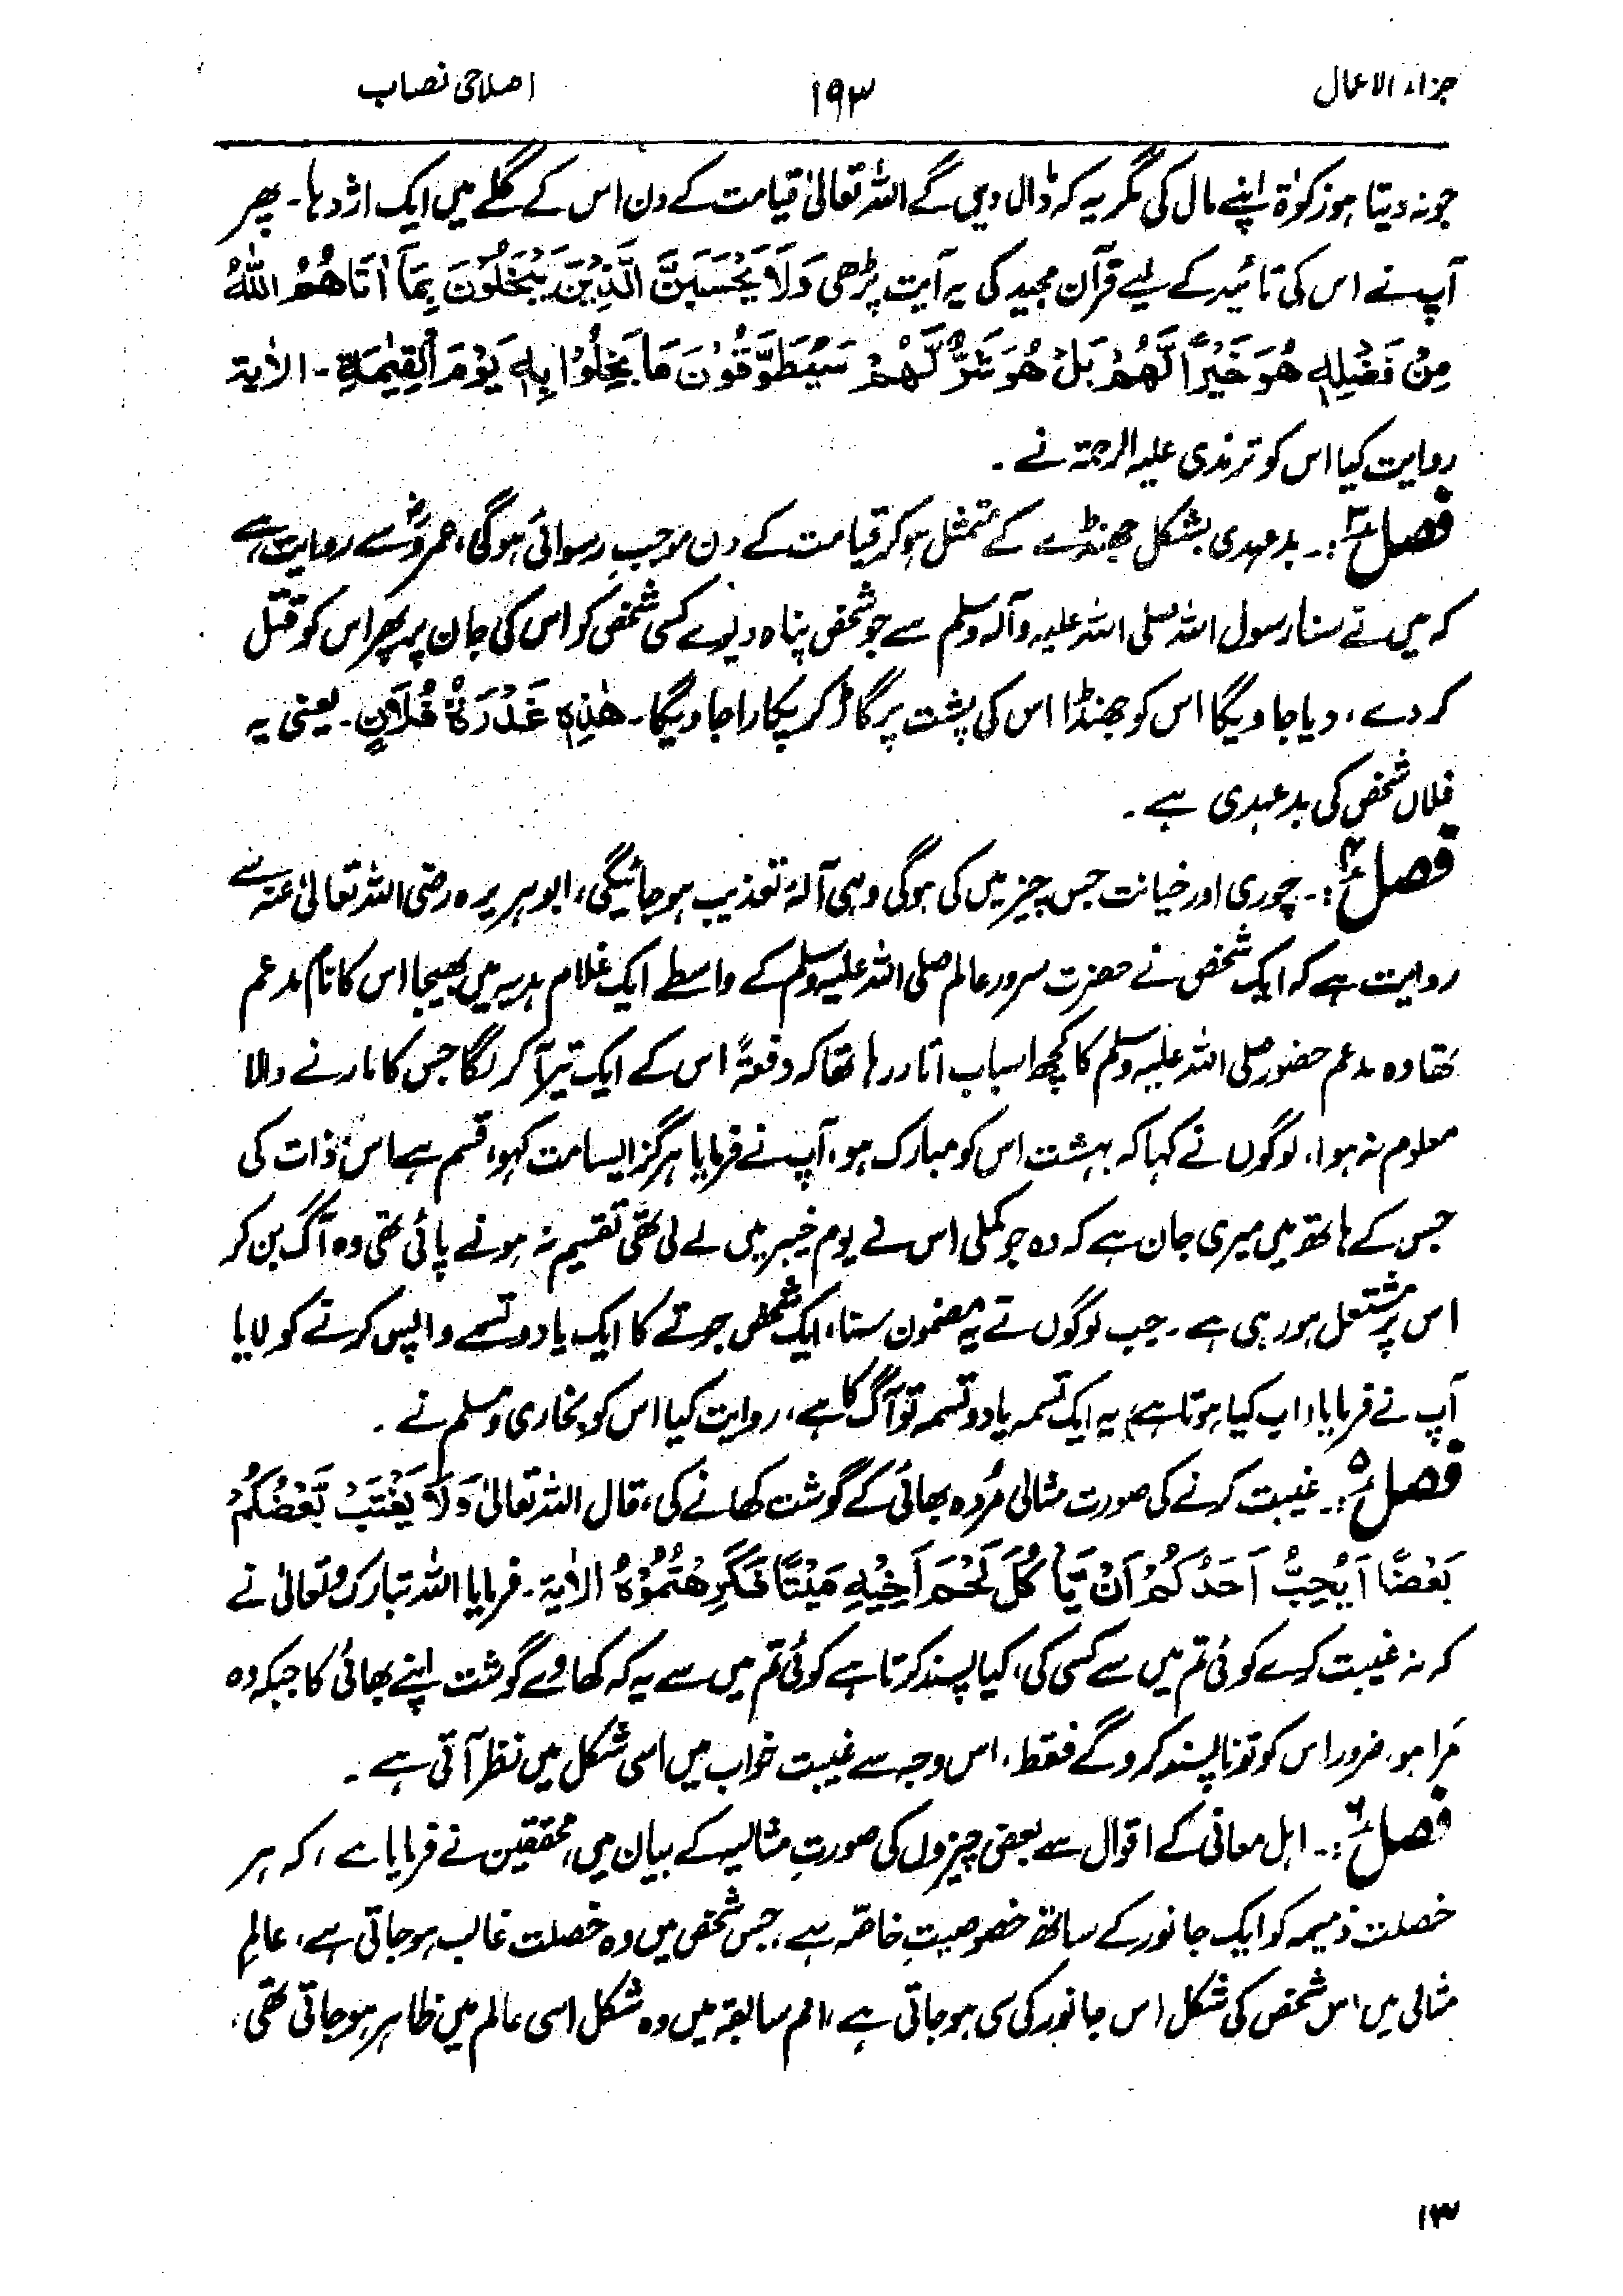 جزاء الاعمال ۱۹۳ اصلاحی نصاب
جو نہ دیتا ہو زکوٰۃ اپنے مال کی مگر یہ کہ ڈال دیں گے اللہ تعالیٰ قیامت کے دن اس کے گلے میں ایک اژدہا۔ پھر
آپ نے اس کی تائید کے لیے قرآن مجید کی یہ آیت پڑھی وَلَا يَحْسَبَنَّ الَّذِيْنَ يَبْخَلُوْنَ بِمَآ اٰتَاهُمُ اللّٰهُ
مِنْ فَضْلِهٖ هُوَ خَيْرًا لَّهُمْ بَلْ هُوَ شَرٌّ لَّهُمْ سَيُطَوَّقُوْنَ مَا بَخِلُوْا بِهٖ يَوْمَ الْقِيٰمَةِ۔ الاٰیة
روایت کیا اس کو ترمذی علیہ الرحمۃ نے۔
فصل ۳:۔ بدعہدی بشکل جھنڈے کے متمثل ہو کر قیامت کے دن موجب رسوائی ہوگی، عمروؓ سے روایت ہے
کہ میں نے سنا رسول اللہ صلی اللہ علیہ وآلہ وسلم سے جو شخص پناہ دیوے کسی شخص کو اس کی جان پر پھر اس کو قتل
کر دے، دیا جاویگا اس کو جھنڈا اس کی پشت پر گاڑ کر پکارا جاویگا۔ هٰذِهٖ غَدْرَةُ فُلَانٍ۔ یعنی یہ
فلاں شخص کی بدعہدی ہے۔
فصل ۴:۔ چوری اور خیانت جس چیز میں کی ہوگی وہی آلۂ تعذیب ہو جائیگی، ابو ہریرہ رضی اللہ تعالیٰ عنہ سے
روایت ہے کہ ایک شخص نے حضرت سرور عالم صلی اللہ علیہ وسلم کے واسطے ایک غلام ہدیہ میں بھیجا اس کا نام مدعم
تھا وہ مدعم حضور صلی اللہ علیہ وسلم کا کچھ اسباب اتار رہا تھا کہ دفعۃً اس کے ایک تیر آ کر لگا جس کا مارنے والا
معلوم نہ ہوا، لوگوں نے کہا کہ بہشت اس کو مبارک ہو، آپ نے فرمایا ہرگز ایسا مت کہو، قسم ہے اس ذات کی
جس کے ہاتھ میں میری جان ہے کہ وہ جو کملی اس نے یوم خیبر میں لے لی تھی تقسیم نہ ہونے پائی تھی وہ آگ بن کر
اس پر مشتعل ہو رہی ہے۔ جب لوگوں نے یہ مضمون سنا، ایک شخص جوتے کا ایک یا دو تسمے واپس کرنے کو لایا
آپ نے فرمایا، اب کیا ہوتا ہے یہ ایک تسمہ یا دو تسمہ تو آگ کا ہے، روایت کیا اس کو بخاری و مسلم نے۔
فصل ۵:۔ غیبت کرنے کی صورت مثالی مُردہ بھائی کے گوشت کھانے کی، قال اللہ تعالیٰ وَلَا يَغْتَبْ بَّعْضُكُمْ
بَعْضًا اَيُحِبُّ اَحَدُكُمْ اَنْ يَّاْكُلَ لَحْمَ اَخِيْهِ مَيْتًا فَكَرِهْتُمُوْهُ الاٰیة۔ فرمایا اللہ تبارک و تعالیٰ نے
کہ نہ غیبت کرے کوئی تم میں سے کسی کی، کیا پسند کرتا ہے کوئی تم میں سے یہ کہ کھاوے گوشت اپنے بھائی کا جبکہ وہ
مَرا ہو، ضرور اس کو تو ناپسند کرو گے فقط، اس وجہ سے غیبت خواب میں اسی شکل میں نظر آتی ہے۔
فصل ۶:۔ اہل معانی کے اقوال سے بعض چیزوں کی صورتِ مثالیہ کے بیان میں، محققین نے فرمایا ہے، کہ ہر
خصلت ذمیمہ کو ایک جانور کے ساتھ خصوصیتِ خاصّہ ہے، جس شخص میں وہ خصلت غالب ہو جاتی ہے، عالمِ
مثالی میں اس شخص کی شکل اس جانور کی سی ہو جاتی ہے، امم سابقہ میں وہ شکل اسی عالم میں ظاہر ہو جاتی تھی،
۱۳